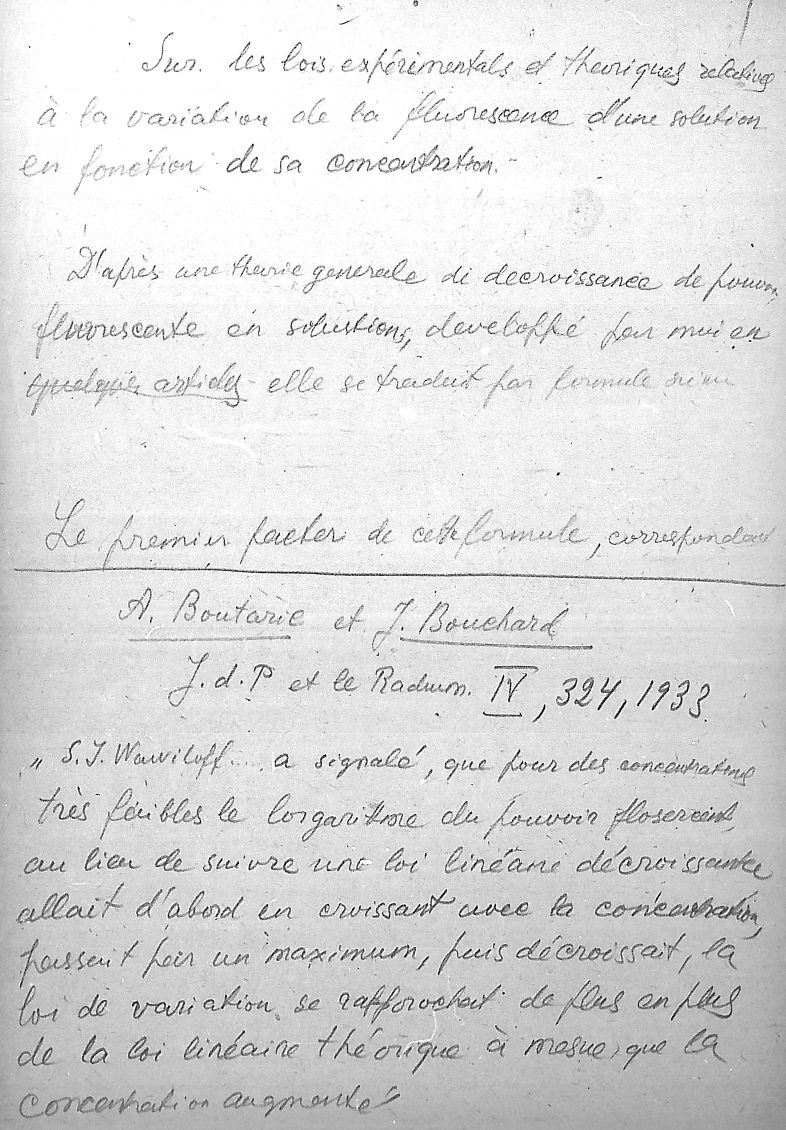 Sur les lois expérimentals et theoriques relatives
à la variation de la fluorescence d'une solution
en fonction de sa concentration.
D'après une theorie generale di decroissance de pouvoir
fluorescente en solutions, developpé par moi en
quelques articles elle se traduit par formule
Le premier facter de cette formule, correspondant
A. Boutarie et J. Bouchard
J. d. P et le Radium. IV, 324, 1933.
„ S. J. Wawiloff... a signalé, que pour des concentrations
très faibles le lorgarithme du pouvoir
au lieu de suivre une loi linéaire décroissante
allait d'abord en croissant avec la concentration,
passait par un maximum, puis décroissait, la
loi de variation se rapprochait de plus en plus
de la loi linéaire théorique à mesure que la
concentration augmente"